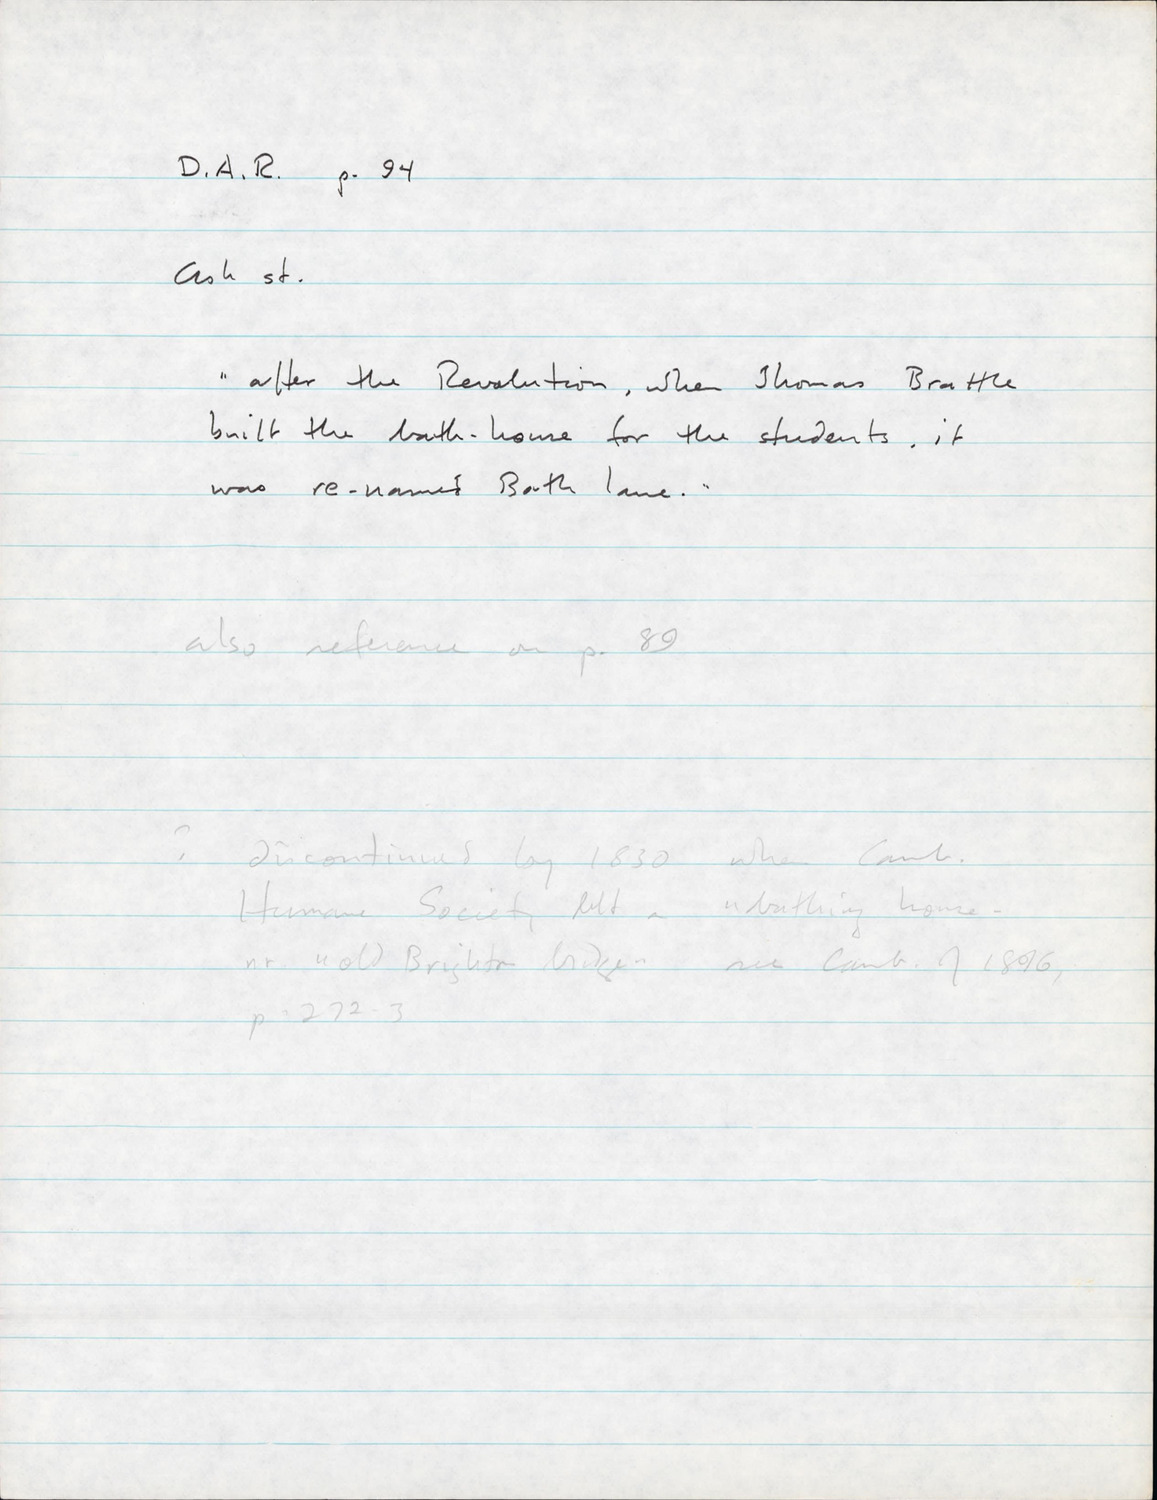 D.A.R. p. 94
Ash st.
"after the Revolution, when Thomas Brattle
built the bath-house for the students, it
was re-named Bath lane."
also reference on p. 89
? discontinued by 1830 when Camb.
Humane Society blt a "bathing house"
nr "old Brighton bridge" see Camb. of 1896,
p. 272-3